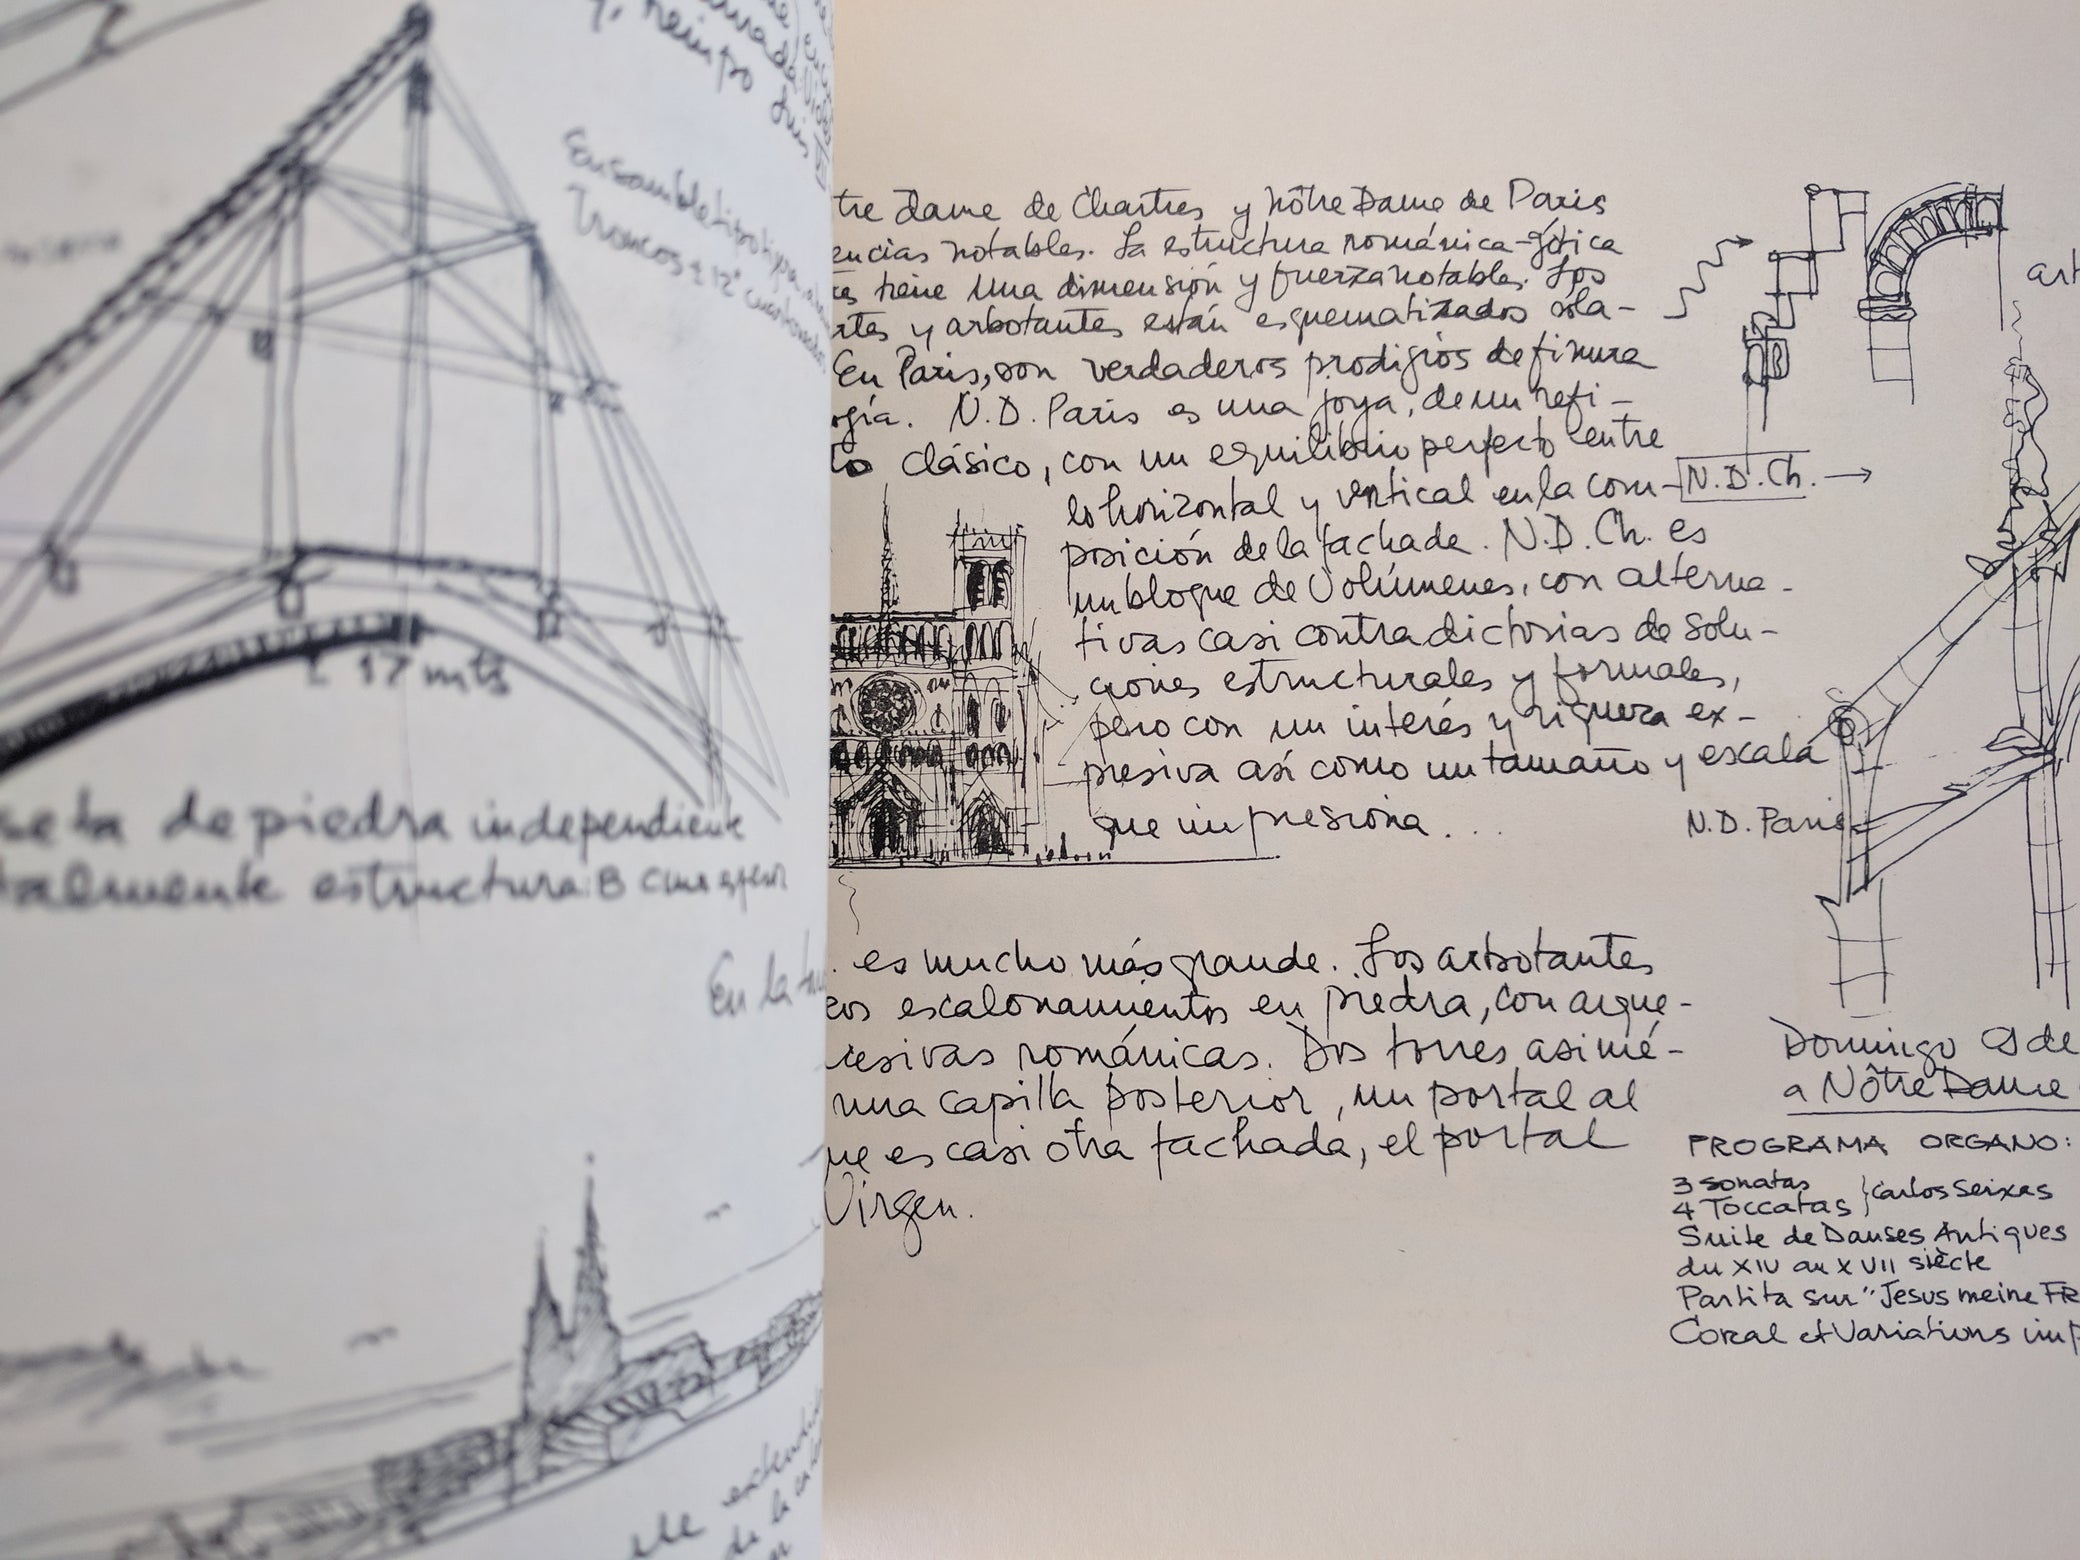 tiempo
Ensamble
Troncos ± 12"
± 17 mts
de piedra independiente
estructura: 8 cms
En la
de la
tre Dame de Chartres y Nôtre Dame de Paris
encias notables. La estructura románica-gótica
es tiene una dimensión y fuerza notables. Los
rtes y arbotantes están esquematizados sóla-
En Paris, son verdaderos prodigios de finura
ogía. N.D. Paris es una joya, de un refi-
to clásico, con un equilibrio perfecto entre
lo horizontal y vertical en la com-
posición de la fachade. N.D. Ch. es
un bloque de Volúmenes, con alterna-
tivas casi contradictorias de solu-
ciones estructurales y formales,
pero con un interés y riqueza ex-
presiva así como un tamaño y escala
que impresiona...
. es mucho más grande. Los arbotantes
cos escalonamientos en piedra, con arque-
cesivas románicas. Dos torres asimé-
una capilla posterior, un portal al
ue es casi otra fachada, el portal
Virgen.
N.D.Ch.
art
N.D. Paris
Domingo 9 de
a Nôtre Dame
PROGRAMA ORGANO:
3 sonatas
4 Toccatas } Carlos Seixas
Suite de Danses Antiques
du XIV au XVII siècle
Partita sur "Jesus meine FR
Coral et Variations imp